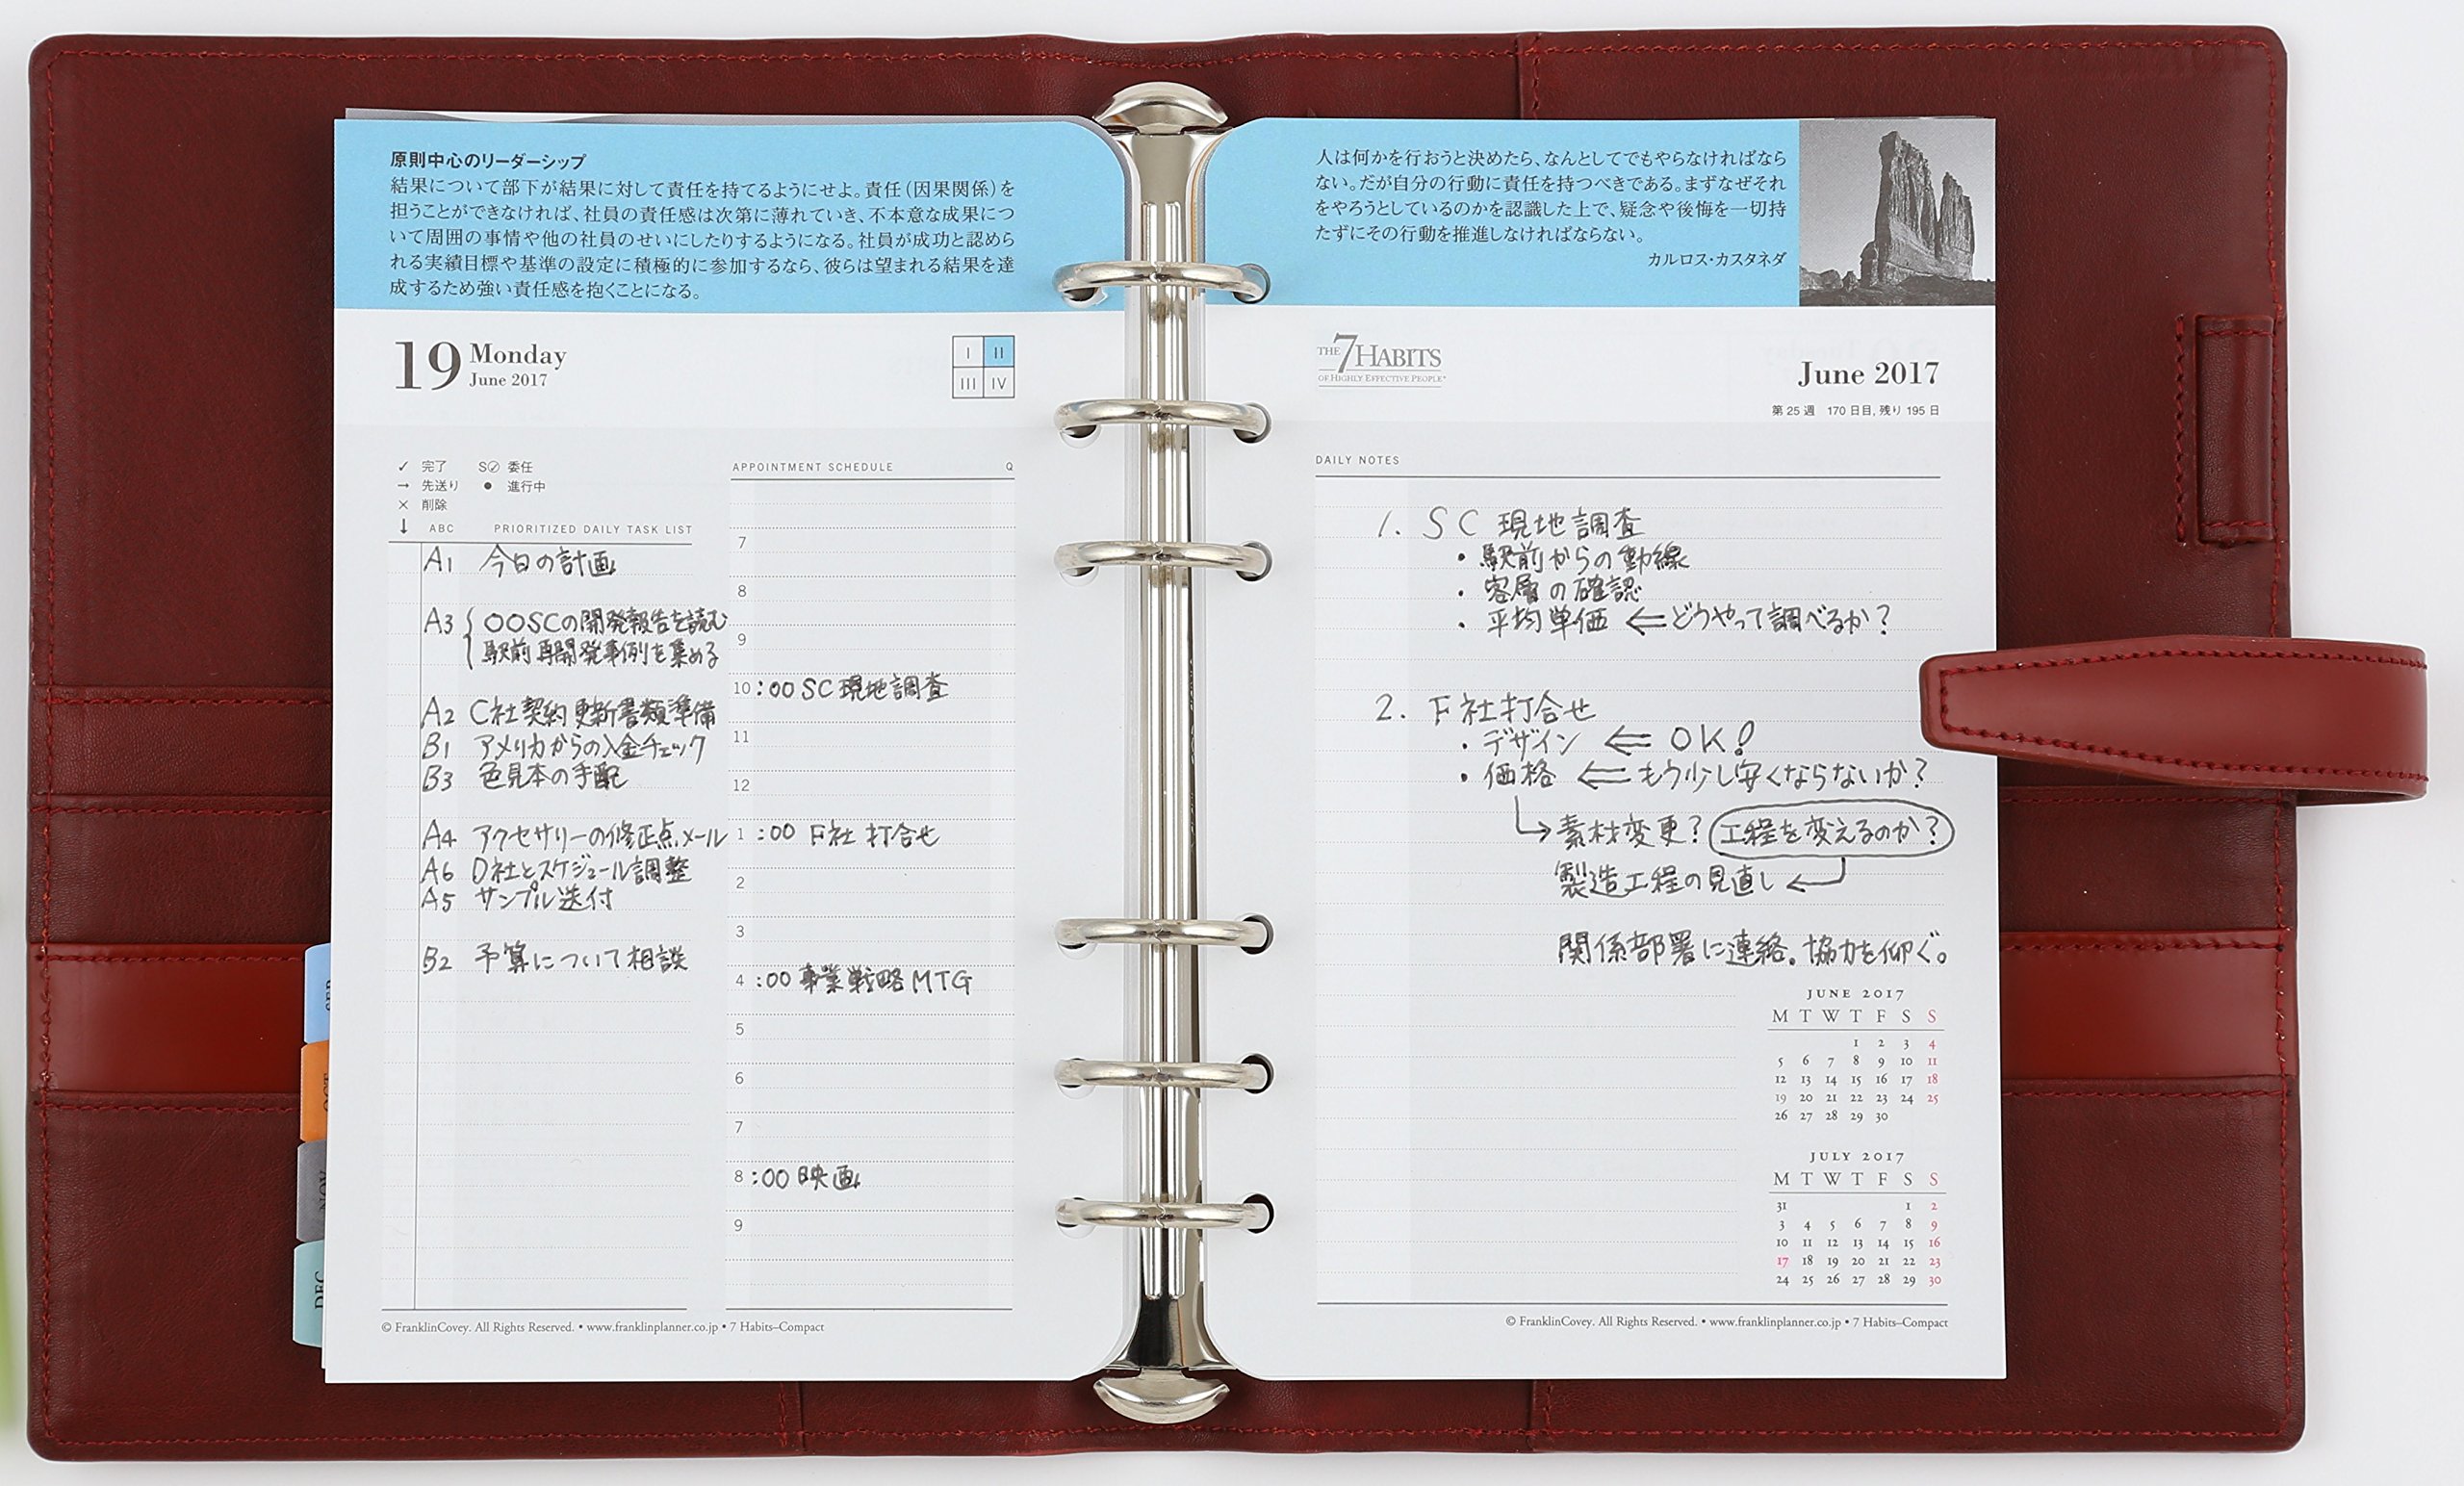 原則中心のリーダーシップ
結果について部下が結果に対して責任を持てるようにせよ。責任(因果関係)を
担うことができなければ、社員の責任感は次第に薄れていき、不本意な成果につ
いて周囲の事情や他の社員のせいにしたりするようになる。社員が成功と認めら
れる実績目標や基準の設定に積極的に参加するなら、彼らは望まれる結果を達
成するため強い責任感を抱くことになる。
19 Monday
June 2017
I II
III IV
✓ 完了 S⊘ 委任
→ 先送り ● 進行中
× 削除
↓ ABC PRIORITIZED DAILY TASK LIST
A1 今日の計画
A3 { 〇〇SCの開発報告を読む
駅前再開発事例を集める
A2 C社契約更新書類準備
B1 アメリカからの入金チェック
B3 色見本の手配
A4 アクセサリーの修正点メール
A6 D社とスケジュール調整
A5 サンプル送付
B2 予算について相談
APPOINTMENT SCHEDULE Q
7
8
9
10 :00 SC現地調査
11
12
1 :00 F社 打合せ
2
3
4 :00 事業戦略MTG
5
6
7
8 :00 映画
9
© FranklinCovey. All Rights Reserved. • www.franklinplanner.co.jp • 7 Habits–Compact
SEP
OCT
NOV
DEC
人は何かを行おうと決めたら、なんとしてでもやらなければなら
ない。だが自分の行動に責任を持つべきである。まずなぜそれ
をやろうとしているのかを認識した上で、疑念や後悔を一切持
たずにその行動を推進しなければならない。
カルロス・カスタネダ
THE 7 HABITS
OF HIGHLY EFFECTIVE PEOPLE®
June 2017
第25週 170日目, 残り195日
DAILY NOTES
1. SC 現地調査
・駅前からの動線
・客層の確認
・平均単価 ⇐ どうやって調べるか?
2. F社打合せ
・デザイン ⇐ OK!
・価格 ⇐ もう少し安くならないか?
↳ 素材変更? 工程を変えるのか?
製造工程の見直し ↵
関係部署に連絡。協力を仰ぐ。
JUNE 2017
M T W T F S S
1 2 3 4
5 6 7 8 9 10 11
12 13 14 15 16 17 18
19 20 21 22 23 24 25
26 27 28 29 30
JULY 2017
M T W T F S S
31 1 2
3 4 5 6 7 8 9
10 11 12 13 14 15 16
17 18 19 20 21 22 23
24 25 26 27 28 29 30
© FranklinCovey. All Rights Reserved. • www.franklinplanner.co.jp • 7 Habits–Compact